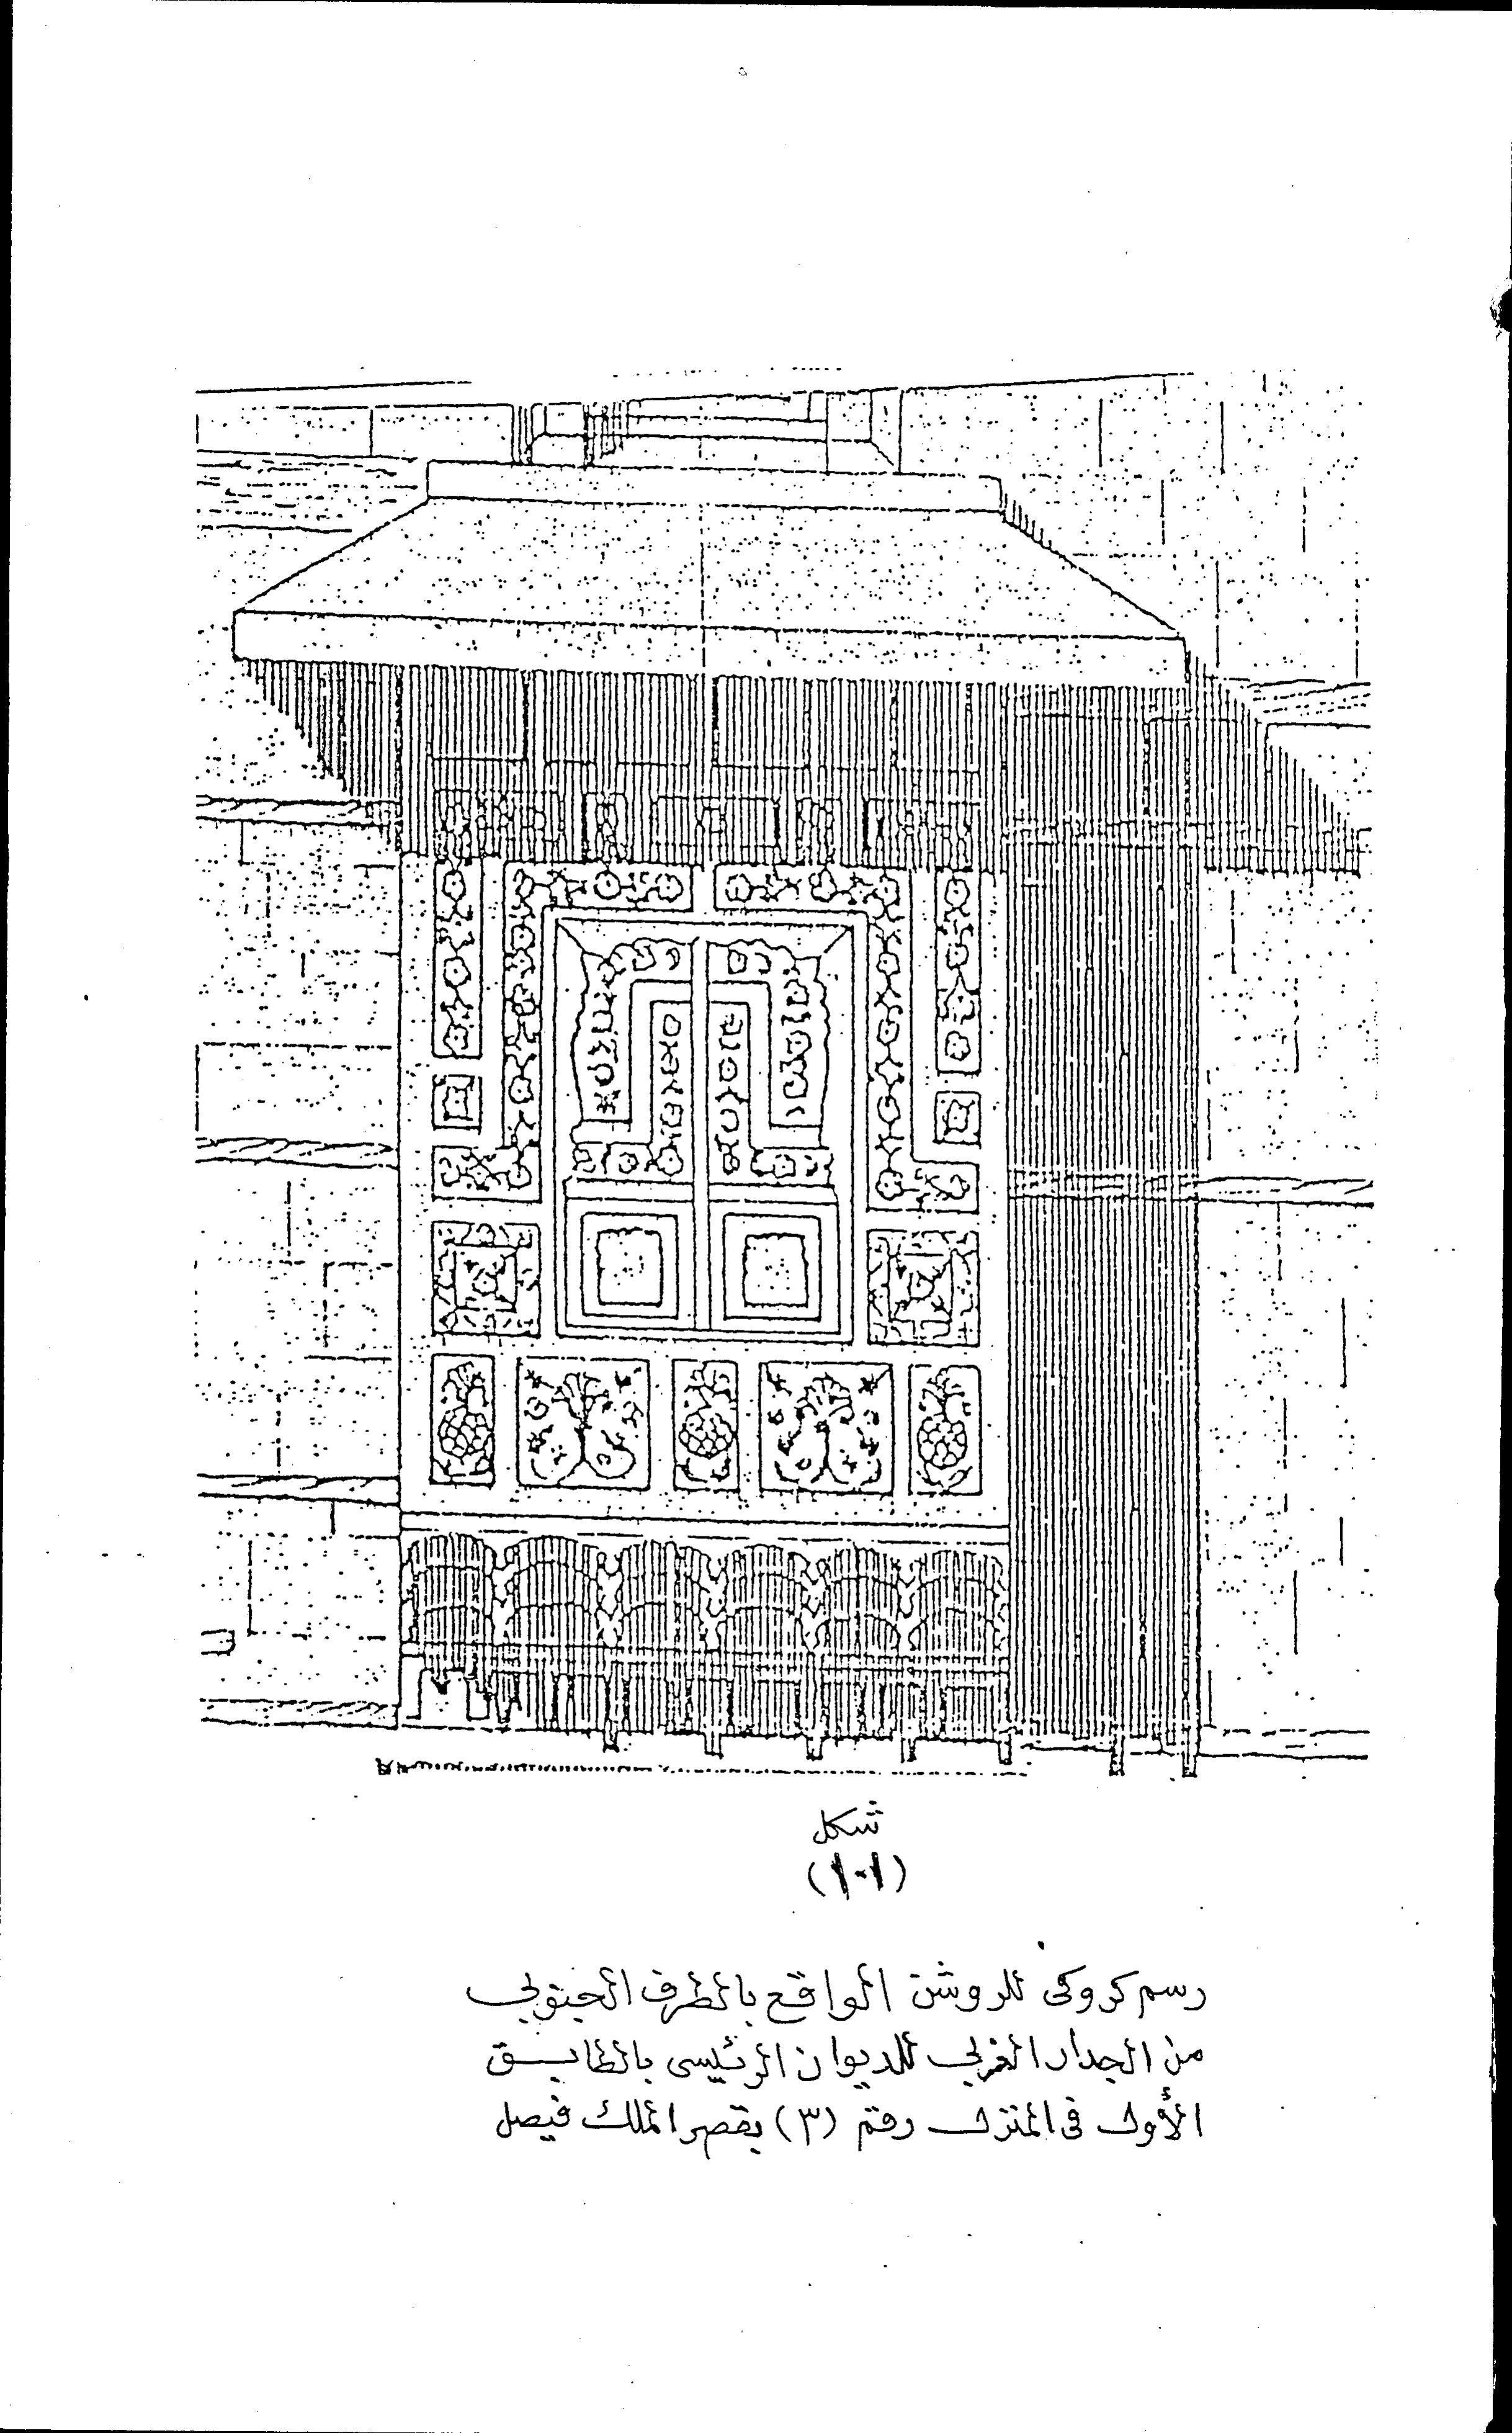 شكل
(١٠١)
رسم كروكى للروشن الواقع بالطرف الجنوبى
من الجدار الغربى للديوان الرئيسى بالطابـــق
الأول فى المنزل رقم (٣) بقصر الملك فيصل